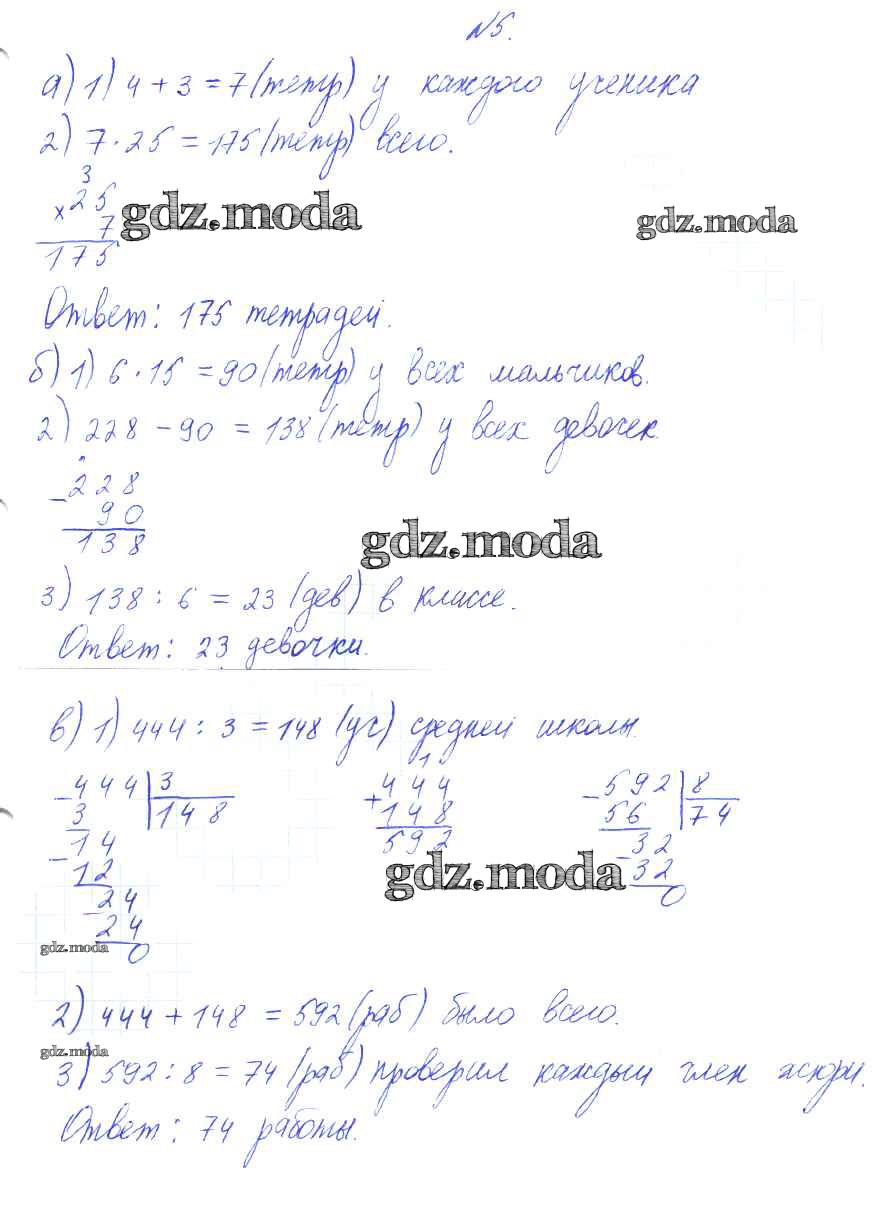 №5.
а) 1) 4 + 3 = 7 (тетр) у каждого ученика
2) 7 · 25 = 175 (тетр) всего.
3
× 25
7
175
gdz.moda
gdz.moda
Ответ: 175 тетрадей.
б) 1) 6 · 15 = 90 (тетр) у всех мальчиков.
2) 228 - 90 = 138 (тетр) у всех девочек.
- 228
90
138
gdz.moda
3) 138 : 6 = 23 (дев) в классе.
Ответ: 23 девочки.
в) 1) 444 : 3 = 148 (уч) средней школы.
- 444 | 3
3 | 148
- 14
12
- 24
24
0
1
+ 444
148
592
- 592 | 8
56 | 74
- 32
32
0
gdz.moda
gdz.moda
2) 444 + 148 = 592 (раб) было всего.
gdz.moda
3) 592 : 8 = 74 (раб) проверил каждый член жюри.
Ответ: 74 работы.